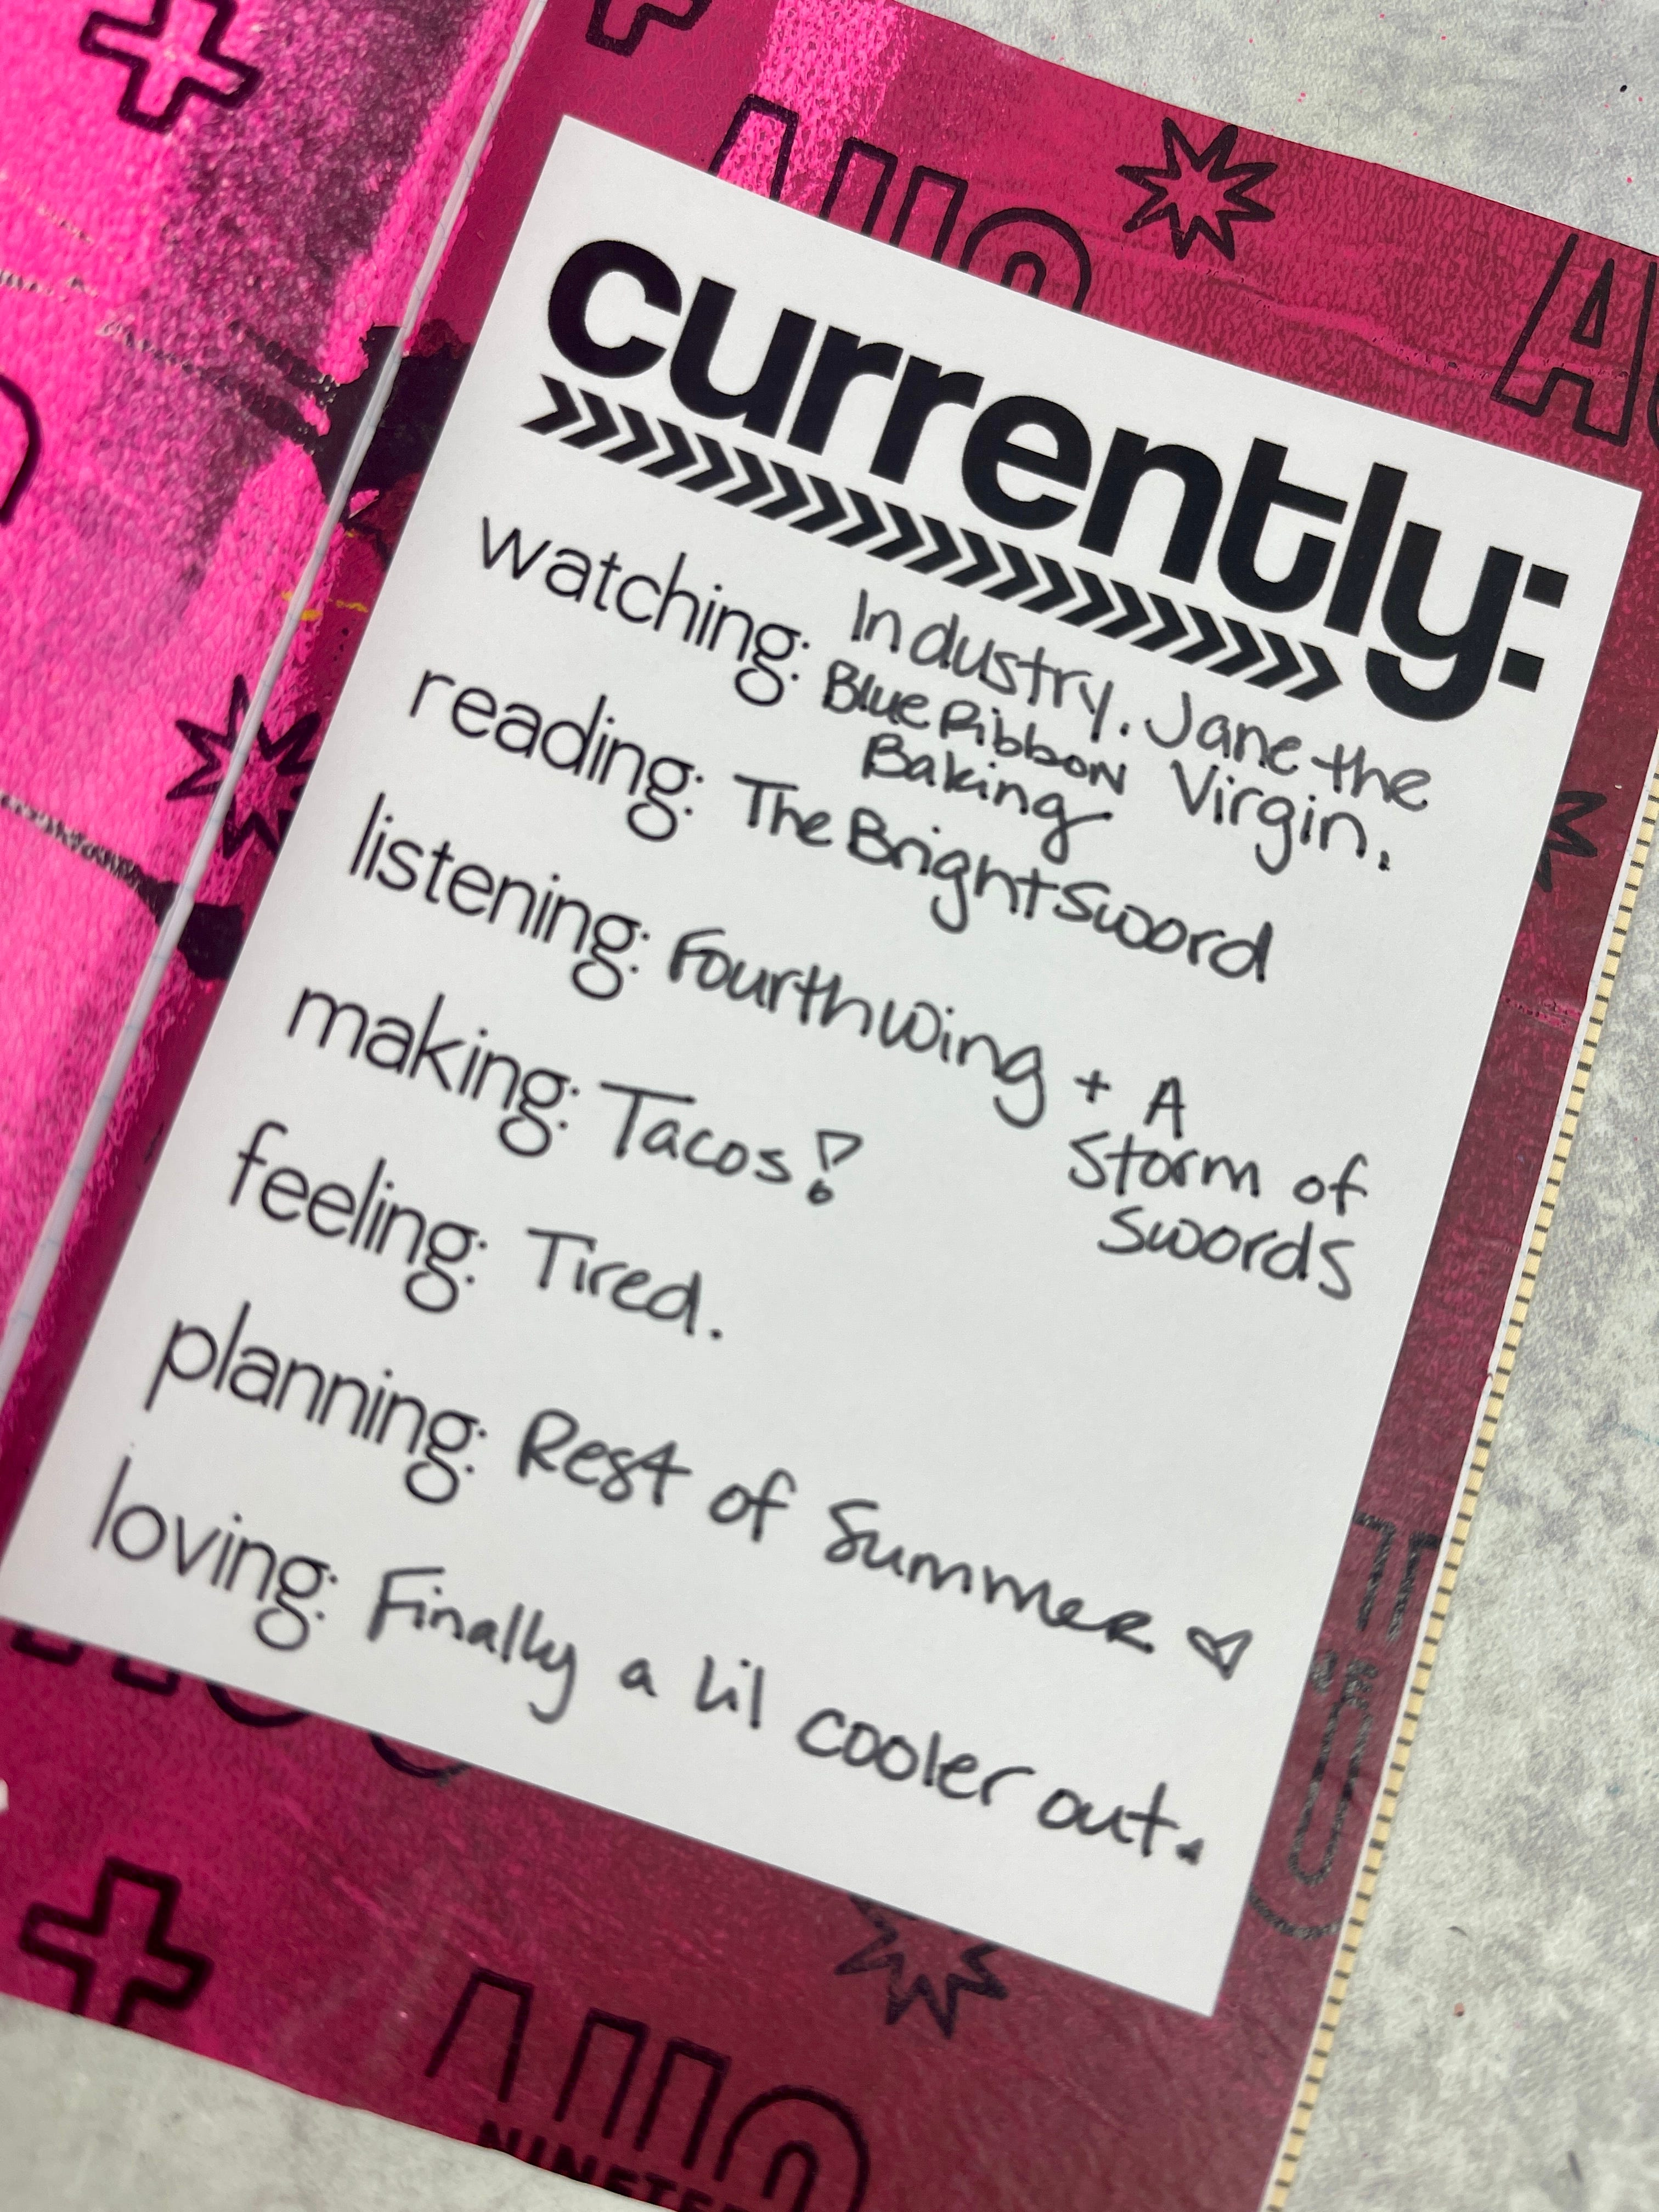 currently:
watching: Industry. Jane the
Blue Ribbon Virgin.
Baking
reading: The Bright Sword
listening: Fourth Wing + A
Storm of
Swords
making: Tacos!
feeling: Tired.
planning: Rest of Summer
loving: Finally a lil cooler out.